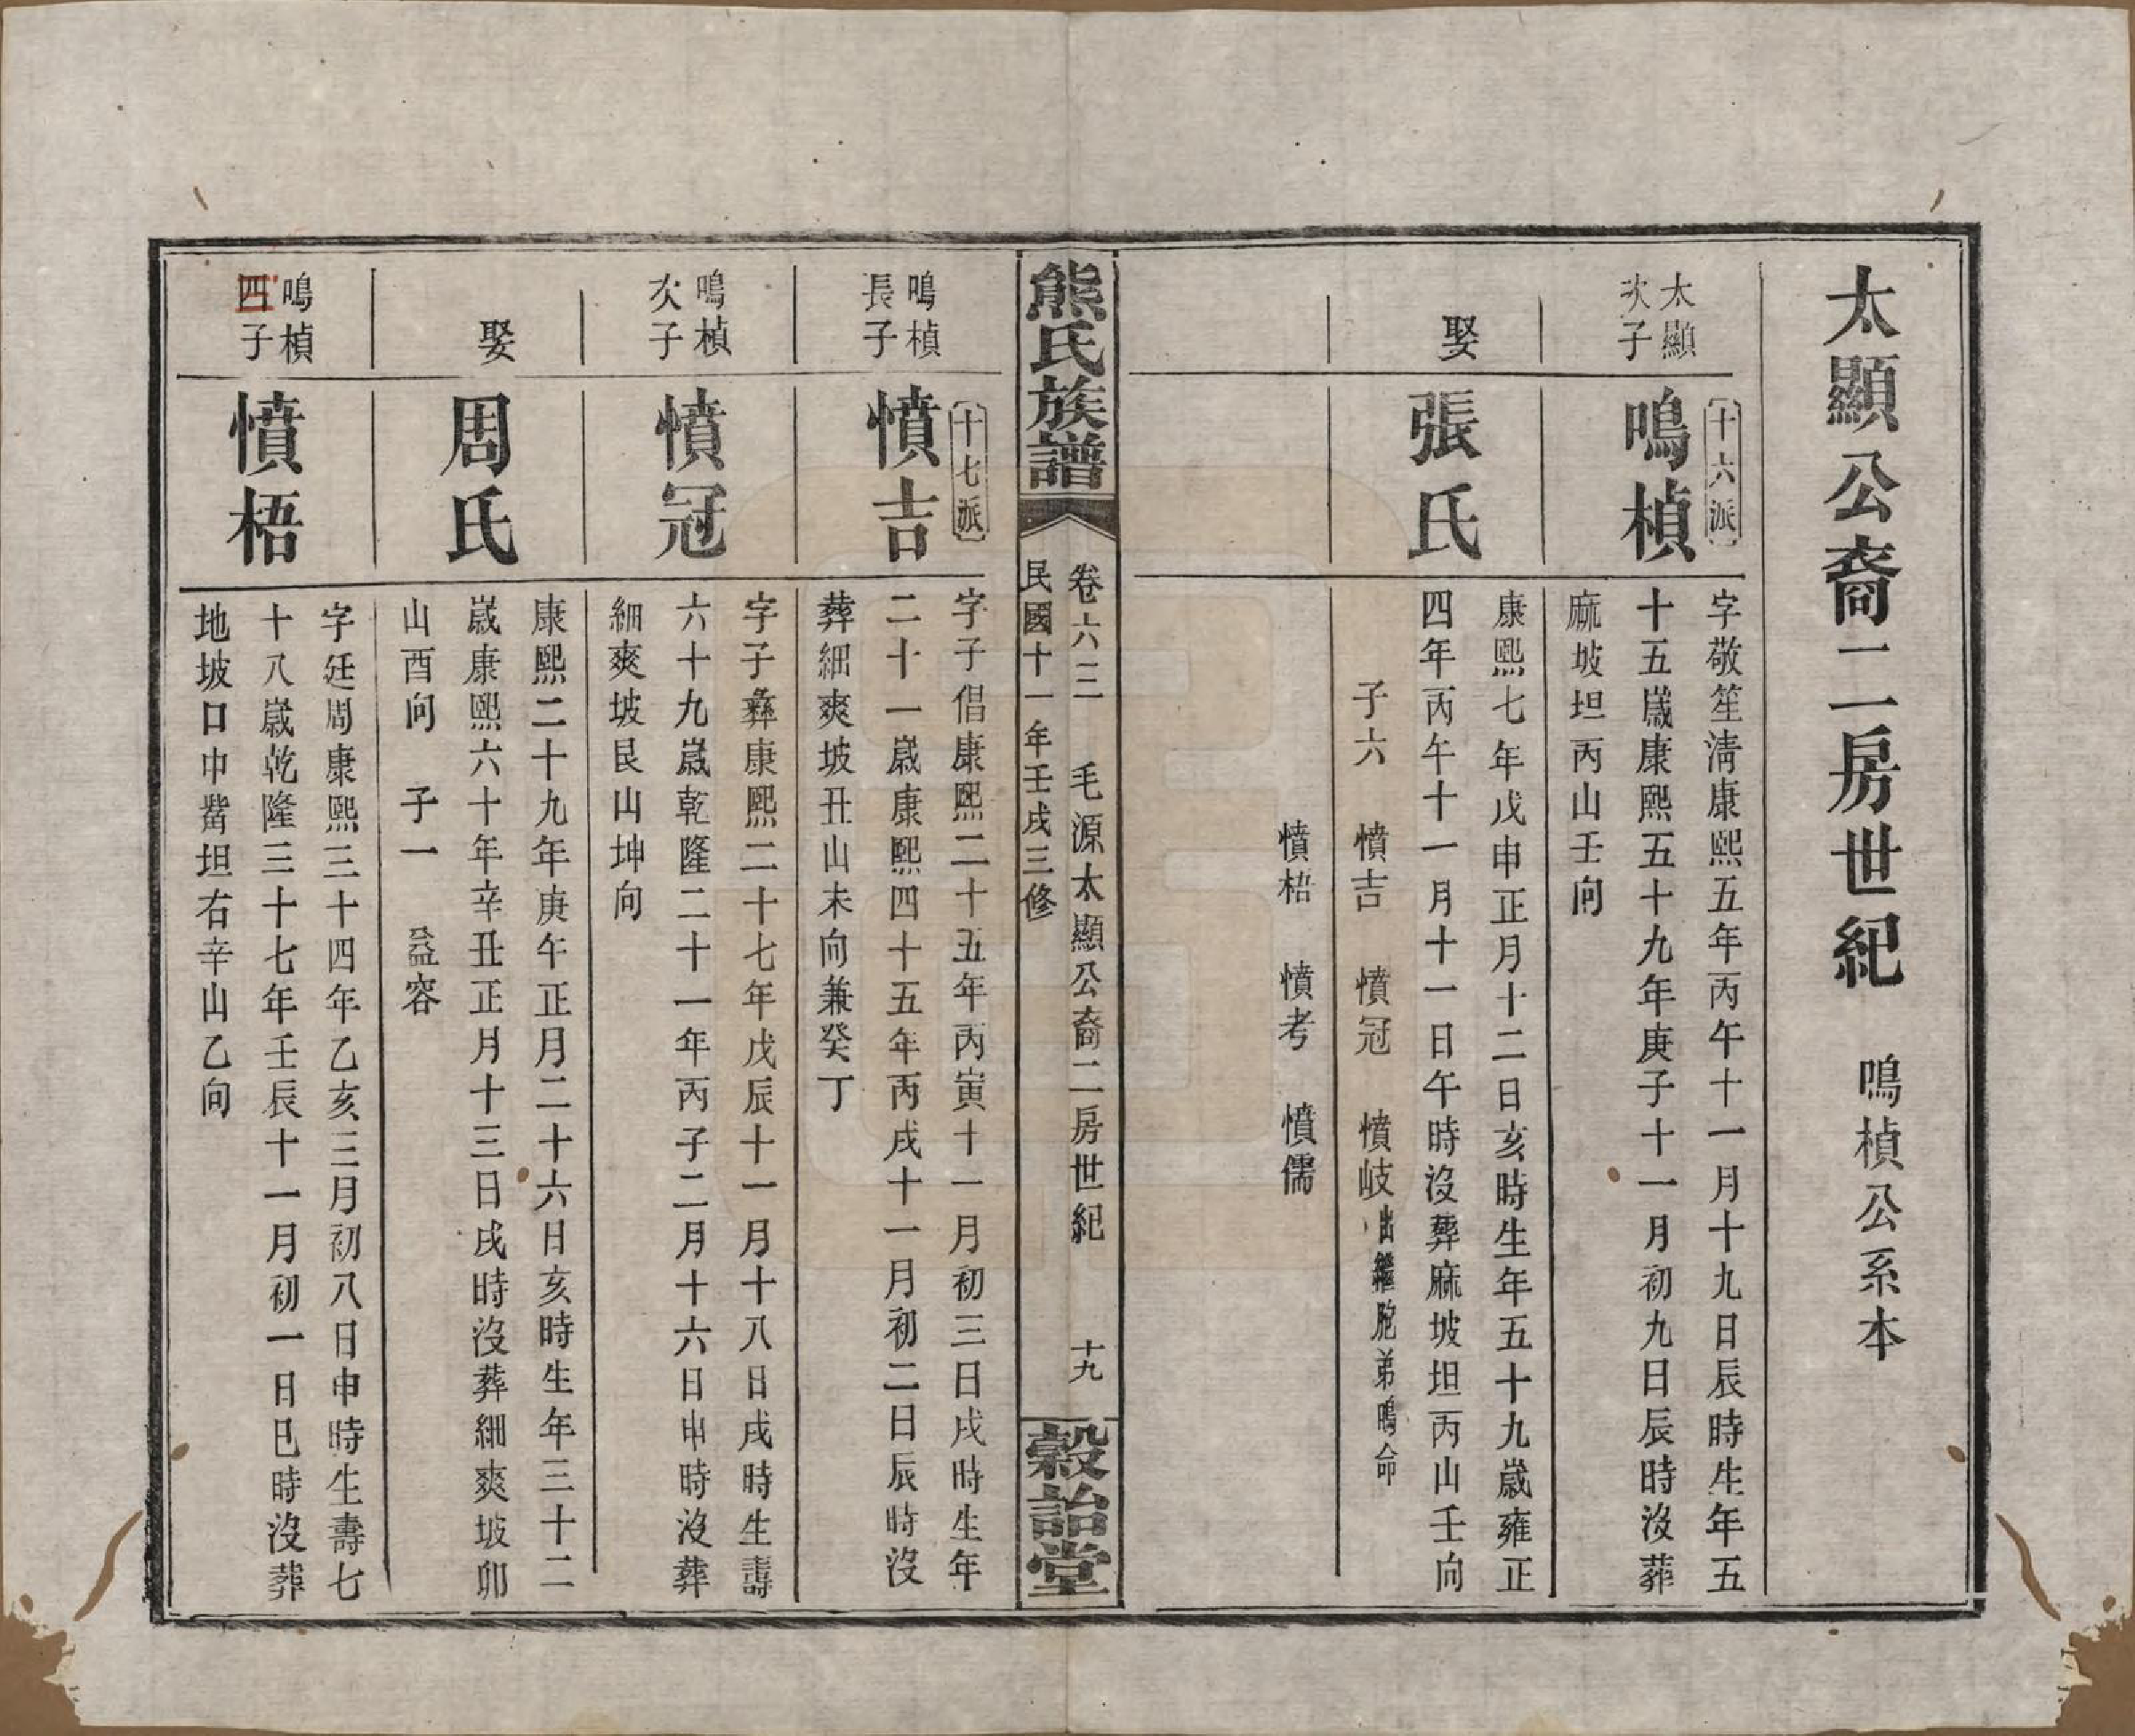 太顯公裔二房世紀　鳴楨公系本
太顯
次子
十六派
鳴楨
字敬笙淸康熙五年丙午十一月十九日辰時生年五
十五歲康熙五十九年庚子十一月初九日辰時沒葬
麻坡坦丙山壬向
娶
張氏
康熙七年戊申正月十二日亥時生年五十九歲雍正
四年丙午十一月十一日午時沒葬麻坡坦丙山壬向
子六　憤吉　憤冠　憤岐出繼胞弟鳴命
憤梧　憤考　憤儒
熊氏族譜
卷六三　毛源太顯公裔二房世紀　十九
民國十一年壬戌三修
穀詒堂
鳴楨
長子
十七派
憤吉
字子倡康熙二十五年丙寅十一月初三日戌時生年
二十一歲康熙四十五年丙戌十一月初二日辰時沒
葬細爽坡丑山未向兼癸丁
鳴楨
次子
憤冠
字子彝康熙二十七年戊辰十一月十八日戌時生壽
六十九歲乾隆二十一年丙子二月十六日申時沒葬
細爽坡艮山坤向
娶
周氏
康熙二十九年庚午正月二十六日亥時生年三十二
歲康熙六十年辛丑正月十三日戌時沒葬細爽坡卯
山酉向　子一　益容
鳴楨
四子
憤梧
字廷周康熙三十四年乙亥三月初八日申時生壽七
十八歲乾隆三十七年壬辰十一月初一日巳時沒葬
地坡口中凿坦右辛山乙向